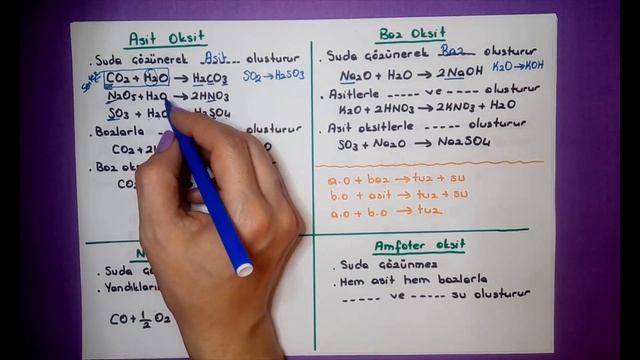 Asit Oksit
. Suda çözünerek Asit oluşturur
CO2 + H2O → H2CO3
SO2 → H2SO3
N2O5 + H2O → 2HNO3
SO3 + H2O H2SO4
. Bazlarla
CO2 + 2
. Baz ok
CO
Baz Oksit
. Suda çözünerek Baz oluşturur
Na2O + H2O → 2NaOH
K2O → KOH
. Asitlerle ----- ve ----- oluşturur
K2O + 2HNO3 → 2KNO3 + H2O
. Asit oksitlerle ----- oluşturur
SO3 + Na2O → Na2SO4
a.O + baz → tuz + su
b.O + asit → tuz + su
a.O + b.O → tuz
N
. Suda çö
. Yandıkların
CO + 1/2 O2
Amfoter oksit
. Suda çözünmez
. Hem asit hem bazlarla
----- ve ----- su oluşturur